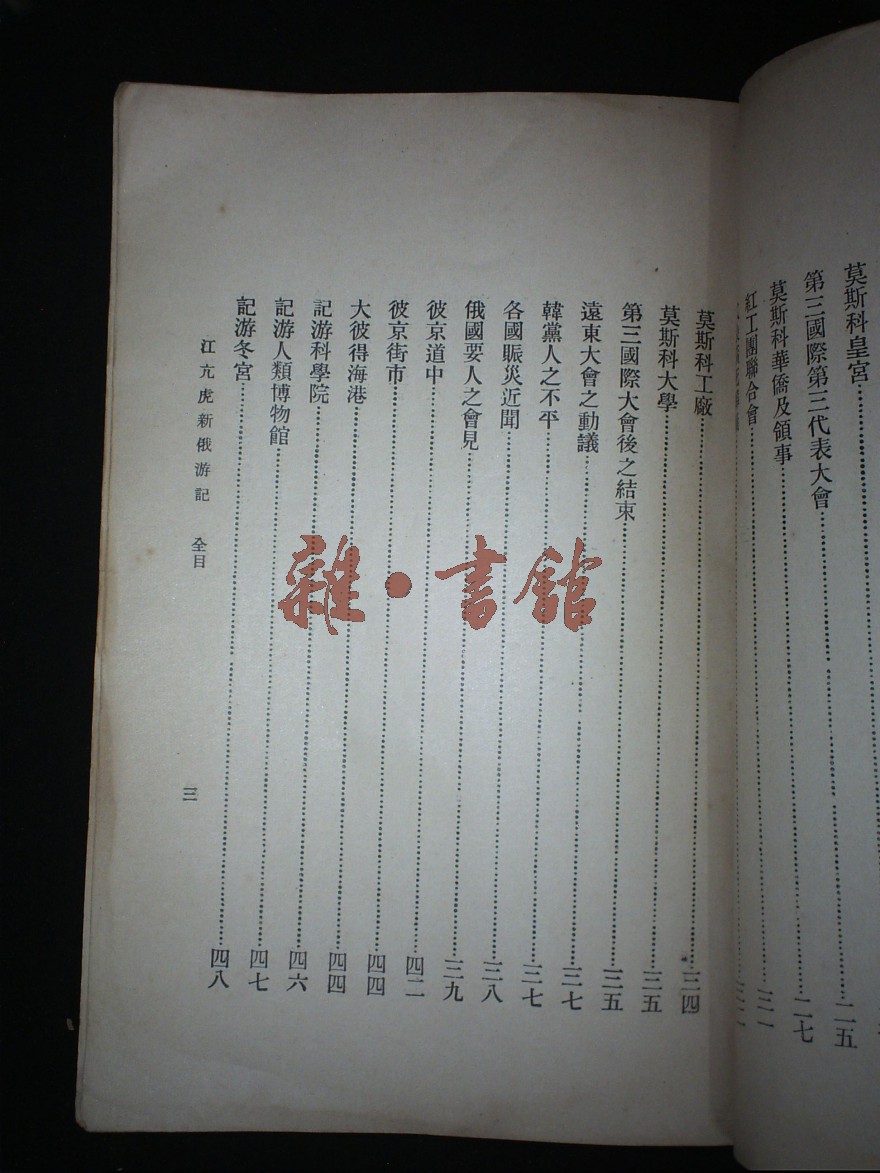 莫斯科皇宮 二五
第三國際第三代表大會 二七
莫斯科華僑及領事 三一
紅工團聯合會
莫斯科工廠 三四
莫斯科大學 三五
第三國際大會後之結束 三五
遠東大會之動議 三七
韓黨人之不平 三七
各國賑災近聞 三八
俄國要人之會見 三九
彼京道中 四二
彼京街市 四四
大彼得海港 四四
記游科學院 四六
記游人類博物館 四七
記游冬宮 四八
江亢虎新俄游記 全目
三
雜·書館